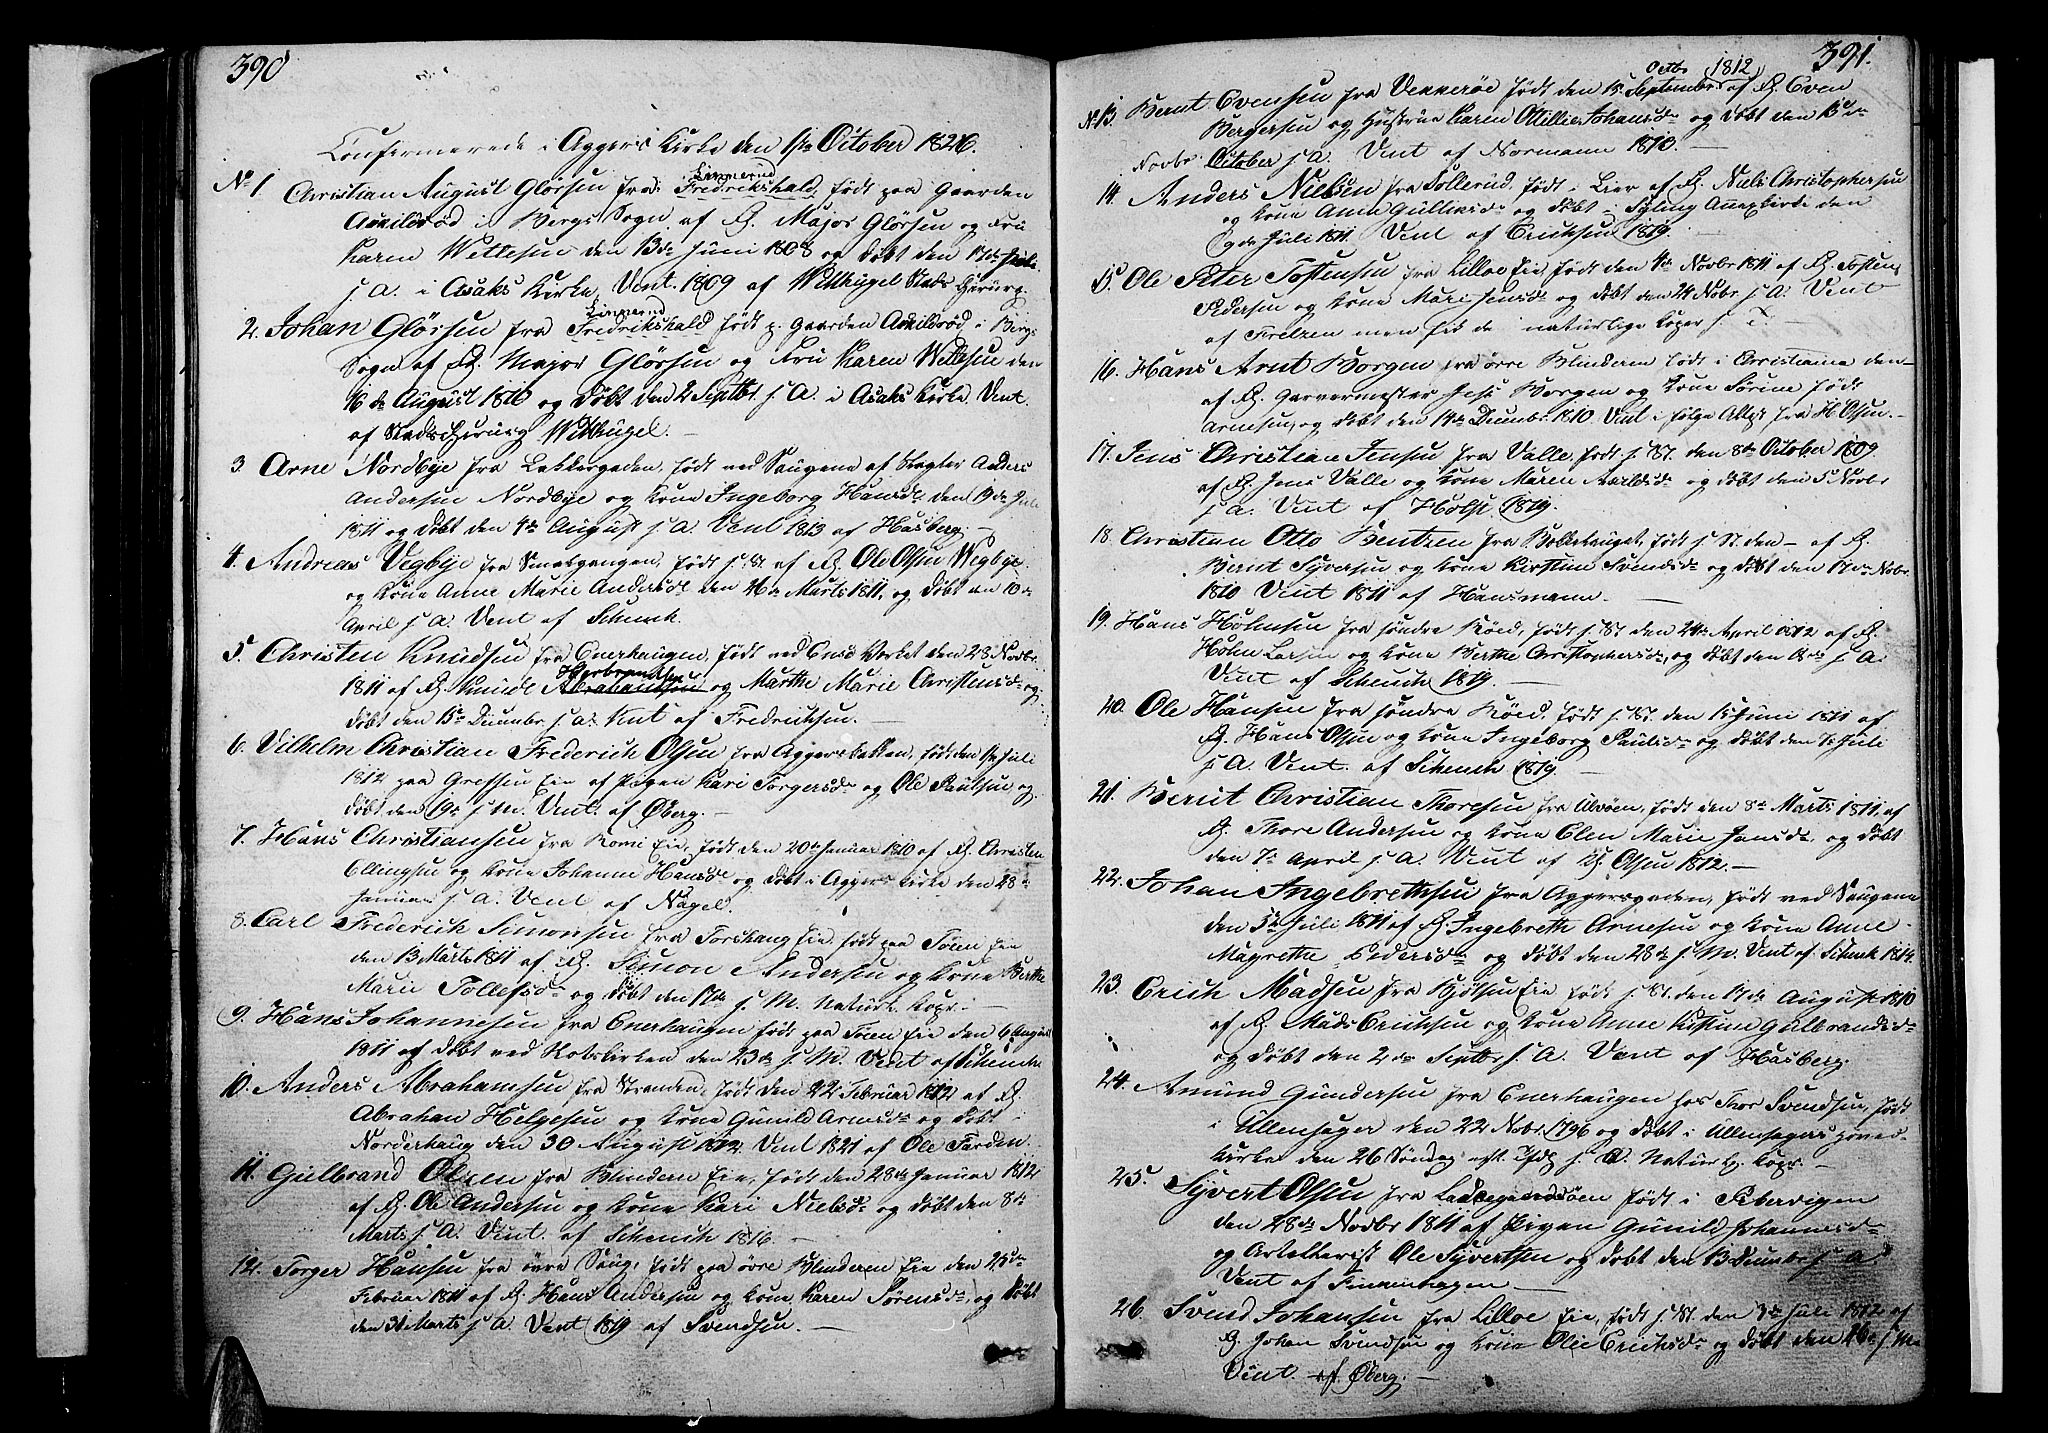 390
Confirmerede i Aggers Kirke den 1ste October 1826.
Linnerud
No 1. Christian August Glörsen fra Fredrikshald, født paa Gaarden
Askilsröd i Bergs Sogn af F. Major Glörsen og Fru
Karen Wettesen den 13de Juni 1808 og døbt den 17de Juli
s. A. i Asaks Kirke, Vent. 1809 af Witthügel Stads Chirurg.
Linnerud
2. Johan Glörsen fra Fredrikshald født p. Gaarden Askildröd i Bergs
Sogn af F. Major Glörsen og Fru Karen Wettesen den
16de August 1810 og døbt den 2 Septbr s. A. i Asaks Kirke. Vent.
af Stadschirurg Witthügel.
3. Arne Nordbye fra Lakkegaden, født ved Saugene af Slagter Anders
Andersen Nordbye og Kone Ingeborg Hansd. den 19de Juli
1811 og døbt den 4de August s. A. Vent 1813 af Hasberg.
4. Andreas Vegbye fra Smalgangen, født s. St. af F. Ole Olsen Wegbye
og Kone Anne Marie Andersd. den 26de Marts 1811, og døbt den 10de
April s. A. Vent af Schenck.
5. Christen Knudsen fra Enerhaugen, født ved Ensø Verket den 28 Novbr
Herbrandsen
1811 af F. Knud Abrahamsen og Marthe Marie Christensd. og
døbt den 15de Decembr s. A. Vent af Fredricksen.
6. Vilhelm Christian Frederich Olsen fra Aggersbakken, født den 1ste Juli
1812 paa Grefsen Eie af Pigen Kari Torgersd. og Ole Paulsen og
døbt den 19de s. M. Vent. af Øberg.
7. Hans Christiansen fra Romi Eie, født den 20de Januar 1810 af F. Christen
Ellingsen og Kone Johanne Hansd. og døbt i Aggers Kirke den 28de
Januar s. A. Vent af Nagel.
8. Carl Frederich Simonsen fra Torshaug Eie, født paa Töien Eie
den 13 Marts 1811 af F. Simon Andersen og Kone Berthe
Marie Tollefsd. og døbt den 17de s. M. Naturl. Kopr.
9. Hans Johannesen fra Enerhaugen født paa Töien Eie den 6 August
1811 og døbt ved Kirken den 23de s. M. Vent af Schencke
10. Anders Abrahamsen fra Stranden, født den 22 Februar 1812 af F.
Abraham Helgesen og Kone Gunild Arnesd. og døbt i
Norderhaug den 30 August 1812. Vent 1821 af Ole Jorden.
11. Gulbrand Olsen fra Blindern Eie, født den 28de Januar 1812
af F. Ole Andersen og Kone Kari Nielsd. og døbt den 8de
Marts s. A. Vent. af Schenck 1816.
12. Torger Hansen fra övre Saug, født paa övre Blinderen Eie den 25de
Februar 1811 af F. Hans Andersen og Kone Karen Sörensd., og døbt
den 31 Marts s. A. Vent 1819 af Svendsen.
391.
Octbr 1812
No 13. Bernt Evensen fra Vekkeröe født den 15 September af F. Even
Bergersen og Hustrue Karen Ottillie Johansd. og døbt den 15de
Novbr October s. A. Vent af Normann 1810.
14. Anders Nielsen fra Sollerud, født i Lier af F. Niels Christophersen
og Kone Anne Gulliksd. og døbt i Sylling Annexkirke den
9de Juli 1811. Vent af Ericksen 1819.
15. Ole Peter Tostensen fra Lilloe Eie, født den 4de Novbr 1811 af F. Tosten
Pedersen og Kone Mari Jensd. og døbt den 24 Novbr s. A. Vent
af Frelzen men fik de naturlige Koper s. T.
16. Hans Arnt Borgen fra övre Blindern født i Christiania den —
af F. Garvermester Jess Borgen og Kone Sörine født
Arnesen, og døbt den 14de Decembr 1810. Vent i følge Attest fra H. Olsen.
17. Jens Christian Jensen fra Valle, født s. St. den 8de October 1809
af F. Jens Valle og Kone Maren Aarlsd. og døbt den 5 Novbr
s. A. Vent af Holst 1819.
18. Christian Otto Bentzen fra Bollehauget, født s. St. den — af F.
Bernt Syversen og Kone Kirstine Svendsd. og døbt den 17de Novbr
1810 Vent 1811 af Hansmann.
19. Hans Holmsen fra söndre Köid, født s. St. den 24de April 1812 af F.
Holm Larsen og Kone Berthe Christophersd., og døbt den s. A.
Vent af Schenck 1819.
20. Ole Hansen fra söndre Köid, født s. St. den 15 Juni 1811 af
F. Hans Olsen og Kone Ingeborg Paulsd. og døbt den 7de Juli
s. A. Vent. af Schenck 1819.
21. Bernt Christian Thoresen fra Ulvöen, født den 8de Marts 1811 af
F. Thore Andersen og Kone Elen Marie Jansd. og døbt
den 7de April s. A. Vent af Olsen 1812.
22. Johan Ingebrethsen fra Aggersgaden, født ved Saugene
den 5te Juli 1811 af F. Ingebreth Arnesen og Kone Anne
Magrethe Pedersd. og døbt den 28de s. M. Vent af Schenck 1814.
23. Erich Madsen fra Bjölsen Eie født s. St. den 17de August 1810
af F. Mads Ericksen og Kone Anne Kistine Gulbrandsd.
og døbt den 2den Septbr s. A. Vent af Hasberg.
24. Amund Gundersen fra Enerhaugen hos Thor Svendsen, født
i Ullensager den 22 Novbr 1796 og døbt i Ullensagers Hoved-
kirke den 26 Söndag eft. Trfdg s. A. Naturlg. Kopr.
25. Syvert Olsen fra Ladegaardsöen født i Pibervigen
den 28de Novbr 1811 af Pigen Gunild Johannesd.
og Artellerist Ole Syvertsen og døbt den 13 Decembr s. A.
Vent af Finnenhagen
26. Svend Johansen fra Lilloe Eie, født s. St. den 3de Juli 1812 af
F. Johan Svendsen og Kone Olea Ericksd. og døbt den 26de s. M.
Vent. af. Øberg.